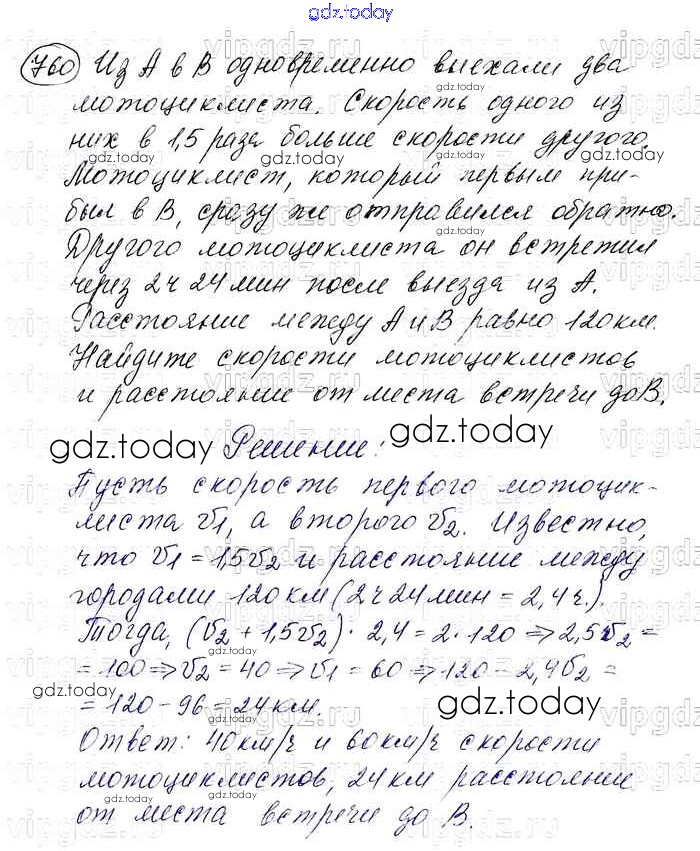 gdz.today
760 Из А в В одновременно выехали два
мотоциклиста. Скорость одного из
них в 1,5 раза больше скорости другого.
Мотоциклист, который первым при-
был в В, сразу же отправился обратно.
Другого мотоциклиста он встретил
через 2 ч 24 мин после выезда из А.
Расстояние между А и В равно 120 км.
Найдите скорости мотоциклистов
и расстояние от места встречи до В.
gdz.today Решение: gdz.today
Пусть скорость первого мотоцик-
листа v1, а второго v2. Известно,
что v1 = 1,5v2 и расстояние между
городами 120 км (2 ч 24 мин = 2,4 ч.).
Тогда, (v2 + 1,5v2) · 2,4 = 2 · 120 ⇒ 2,5v2 =
= 100 ⇒ v2 = 40 ⇒ v1 = 60 ⇒ 120 - 2,4v2 =
= 120 - 96 = 24 км.
Ответ: 40 км/ч и 60 км/ч скорости
мотоциклистов, 24 км расстояние
от места встречи до В.